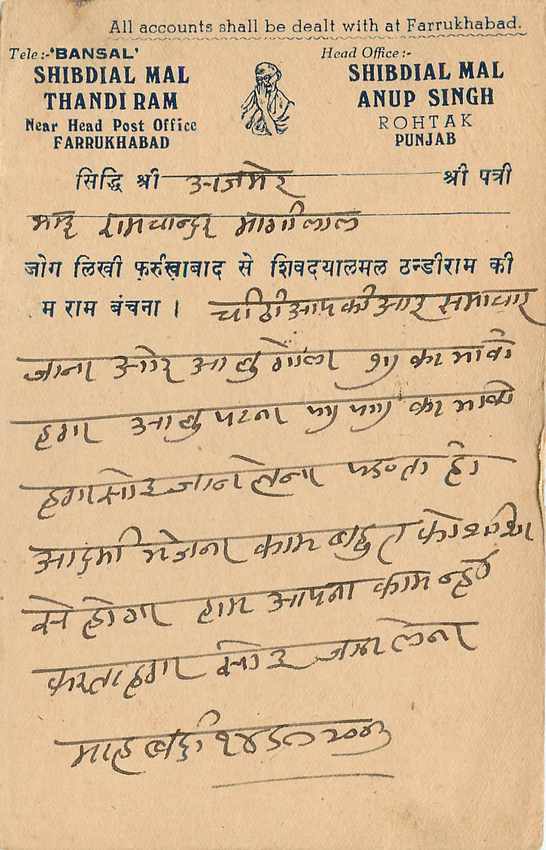 All accounts shall be dealt with at Farrukhabad.
Tele:-'BANSAL'
SHIBDIAL MAL
THANDI RAM
Near Head Post Office
FARRUKHABAD
Head Office:-
SHIBDIAL MAL
ANUP SINGH
ROHTAK
PUNJAB
सिद्धि श्री अजमेर श्री पत्री
भाइ रामचान्दर मागीलाल
जोग लिखी फ़र्रुखाबाद से शिवदयालमल ठन्डीराम की
म राम बंचना । चीठी आप की आइ समाचार
जाना ओर आलु गोला का भाव
हगा आलु पटना का भाव
हगा सोइ जान लेना पडता है
आदमी भेजना काम बहुत कोशीश
से होगा हाम आपना काम
करता हगा सोइ लेना
माह बदी १४ २००३